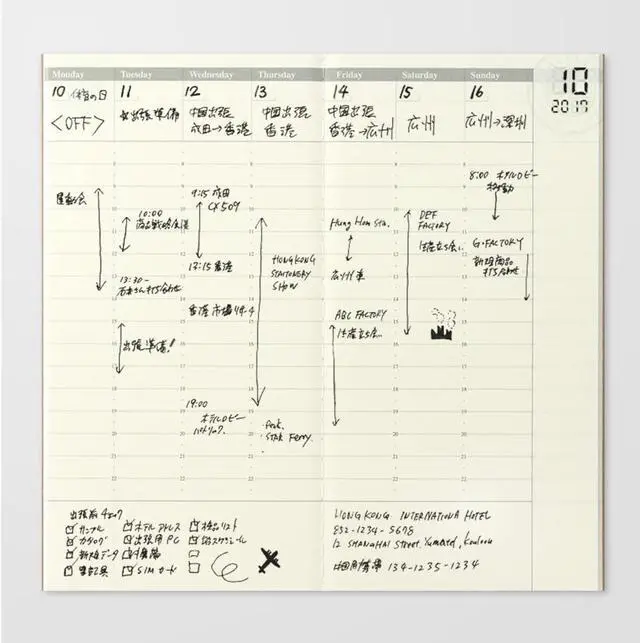 Monday Tuesday Wednesday Thursday Friday Saturday Sunday
10 2017
10 体育の日
<OFF>
運動会
11
出張準備
10:00
商品戦略会議
13:30-
石井さん打ち合わせ
出張準備!
12
中国出張
成田→香港
9:15 成田
CX509
13:15 香港
香港市場リサーチ
19:00
ホテルロビー
パトリック
13
中国出張
香港
HONGKONG
STATIONERY
SHOW
・Peak
・STAR Ferry
14
中国出張
香港→広州
Hung Hom Sta.
広州東
ABC FACTORY
生産立ち会い
15
広州
DEF
FACTORY
生産立ち会い
16
広州→深圳
8:00 ホテルロビー
移動
G・FACTORY
新規商品
打ち合わせ
出張前チェック
サンプル
カタログ
新規データ
筆記具
ホテルアドレス
出張用PC
携帯
SIMカード
検品リスト
スケジュール
HONG KONG INTERNATIONA HOTEL
852-1234-5678
12 SHANGHAI Street, Yumatei, Kouloon
中国用携帯 134-1235-1234